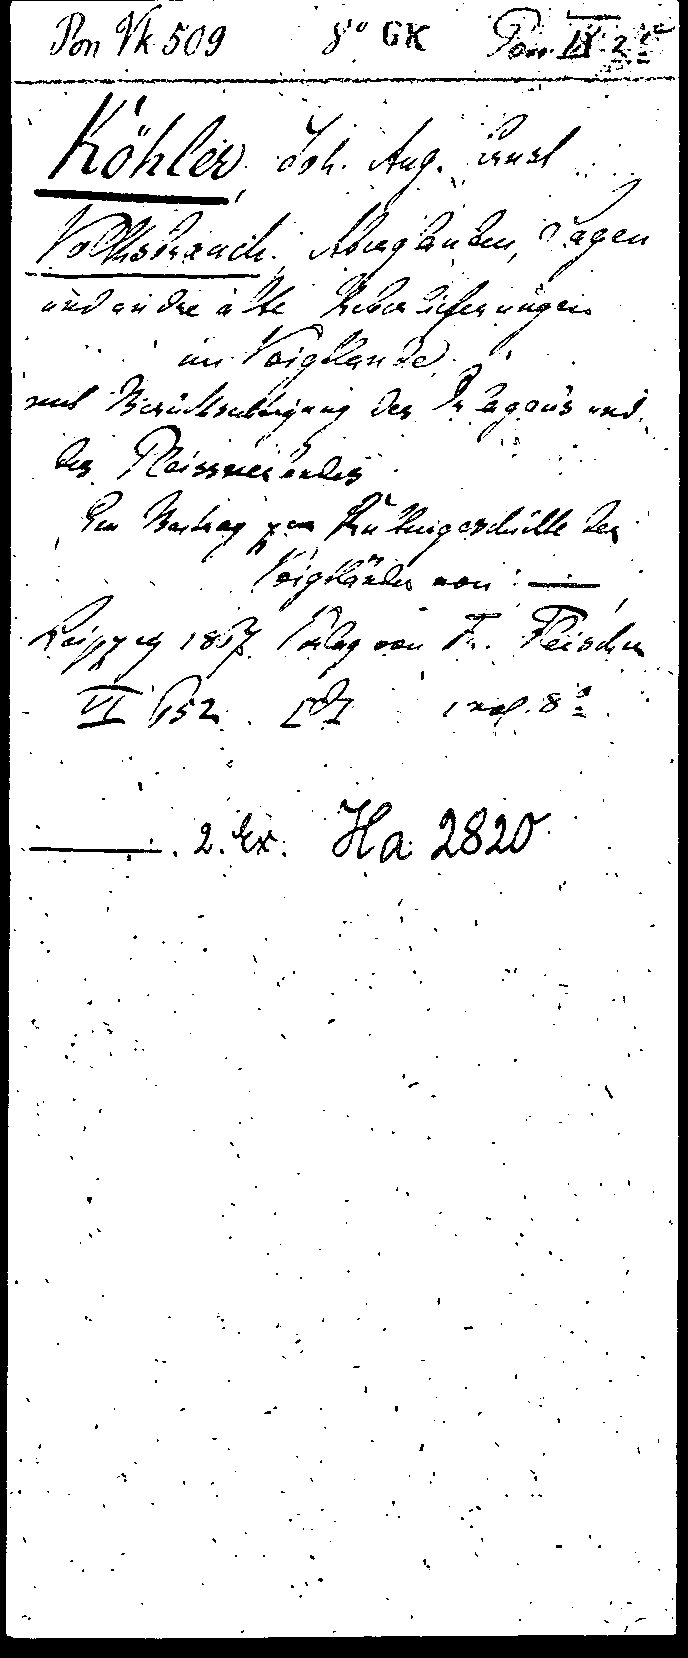 Pon Vk 509 8° GK Pon. IX. 2
Köhler, Joh. Aug. Ernst
Volksbrauch, Aberglauben, Sagen
und andre alte Ueberlieferungen
im Voigtlande
mit Berücksichtigung des Orlagau's und
des Pleissnerlandes
Ein Beitrag zur Kulturgeschichte der
Voigtländer von: —
Leipzig 1867 Verlag von Fr. Fleischer
VI 652 8°
— . 2. Ex. Ha 2820